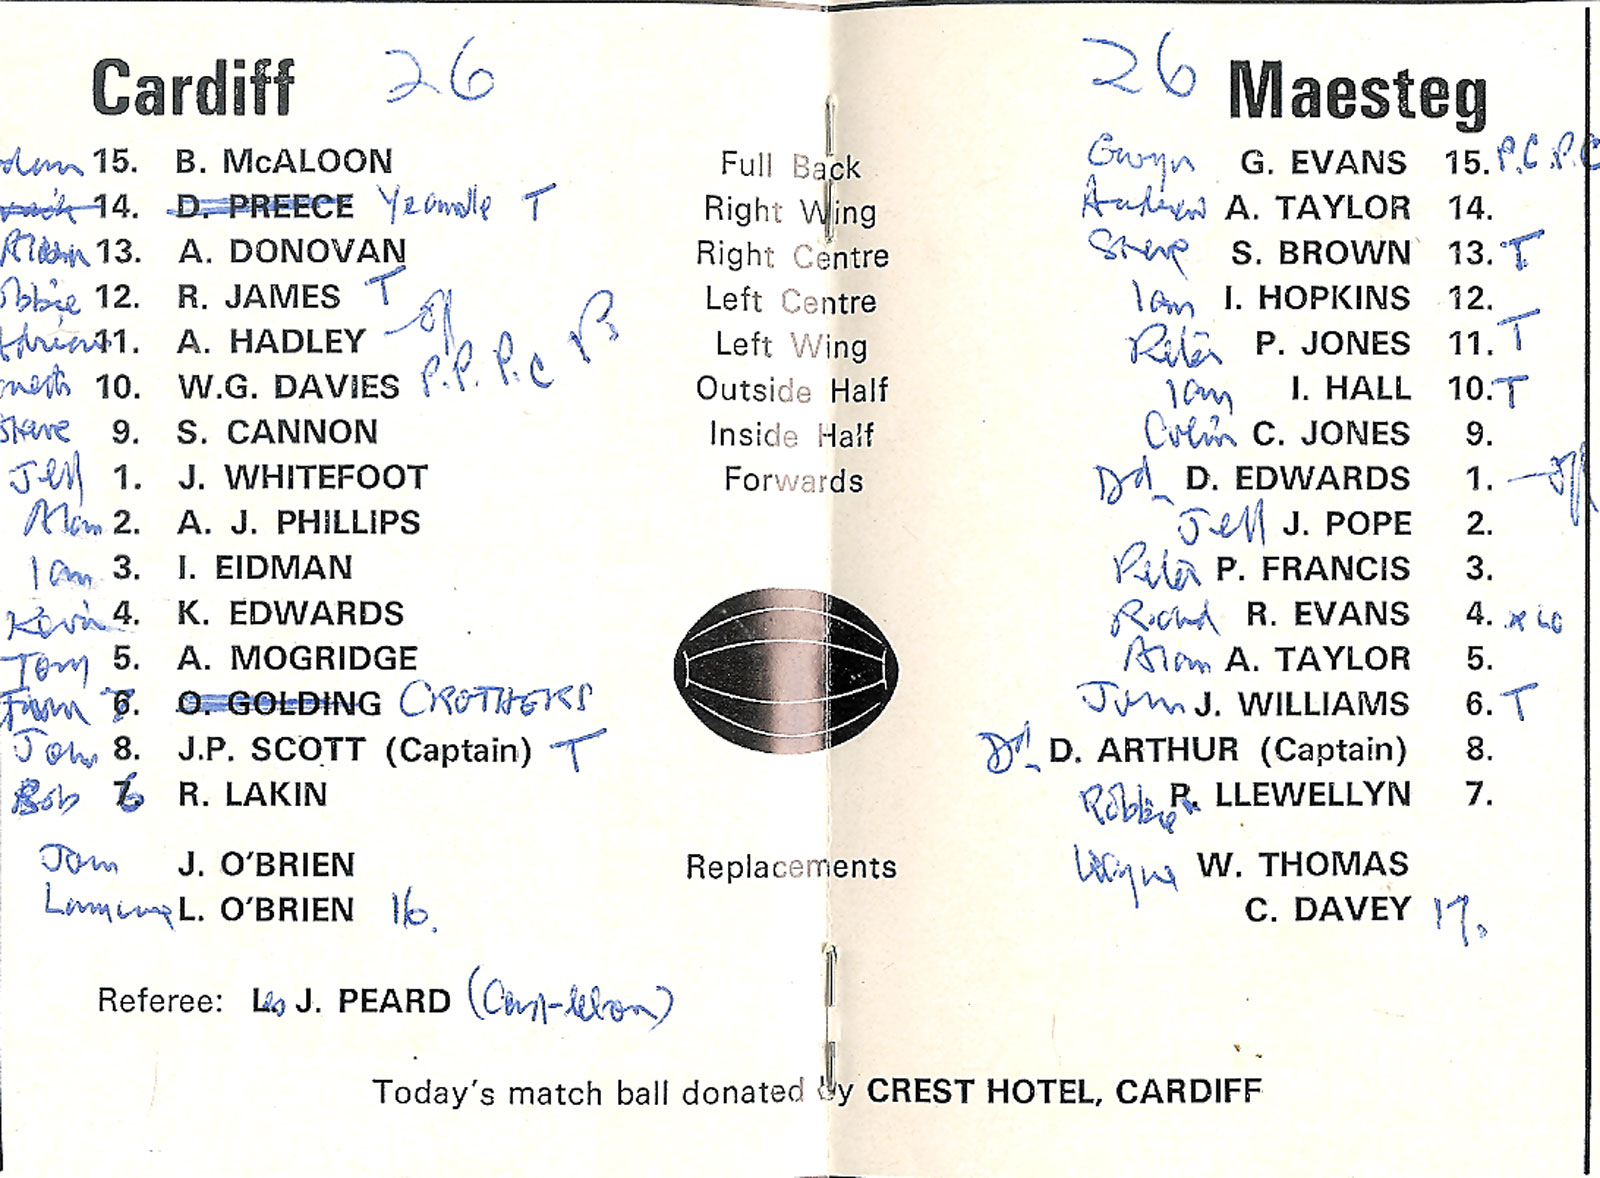 Cardiff 26
15. B. McALOON
14. D. PREECE Yeandle T
13. A. DONOVAN
12. R. JAMES T
11. A. HADLEY - off
10. W.G. DAVIES P.P. P.C
Steve 9. S. CANNON
Jeff 1. J. WHITEFOOT
Alan 2. A. J. PHILLIPS
Ian 3. I. EIDMAN
Kevin 4. K. EDWARDS
Tony 5. A. MOGRIDGE
O. GOLDING CROTHERS
John 8. J.P. SCOTT (Captain) T
Bob 6 R. LAKIN
John J. O'BRIEN
L. O'BRIEN 16.
Referee: Les J. PEARD (Castleton)
Full Back
Right Wing
Right Centre
Left Centre
Left Wing
Outside Half
Inside Half
Forwards
Replacements
26 Maesteg
Gwyn G. EVANS 15. P.C.P.C
Andrew A. TAYLOR 14.
Steve S. BROWN 13. T
Ian I. HOPKINS 12.
Peter P. JONES 11. T
Ian I. HALL 10. T
Colin C. JONES 9.
Dd. D. EDWARDS 1. - off
Jeff J. POPE 2.
Peter P. FRANCIS 3.
Richard R. EVANS 4. x 40
Alan A. TAYLOR 5.
John J. WILLIAMS 6. T
Dd. D. ARTHUR (Captain) 8.
Robbie R. LLEWELLYN 7.
Wayne W. THOMAS
C. DAVEY 17.
Today's match ball donated by CREST HOTEL, CARDIFF